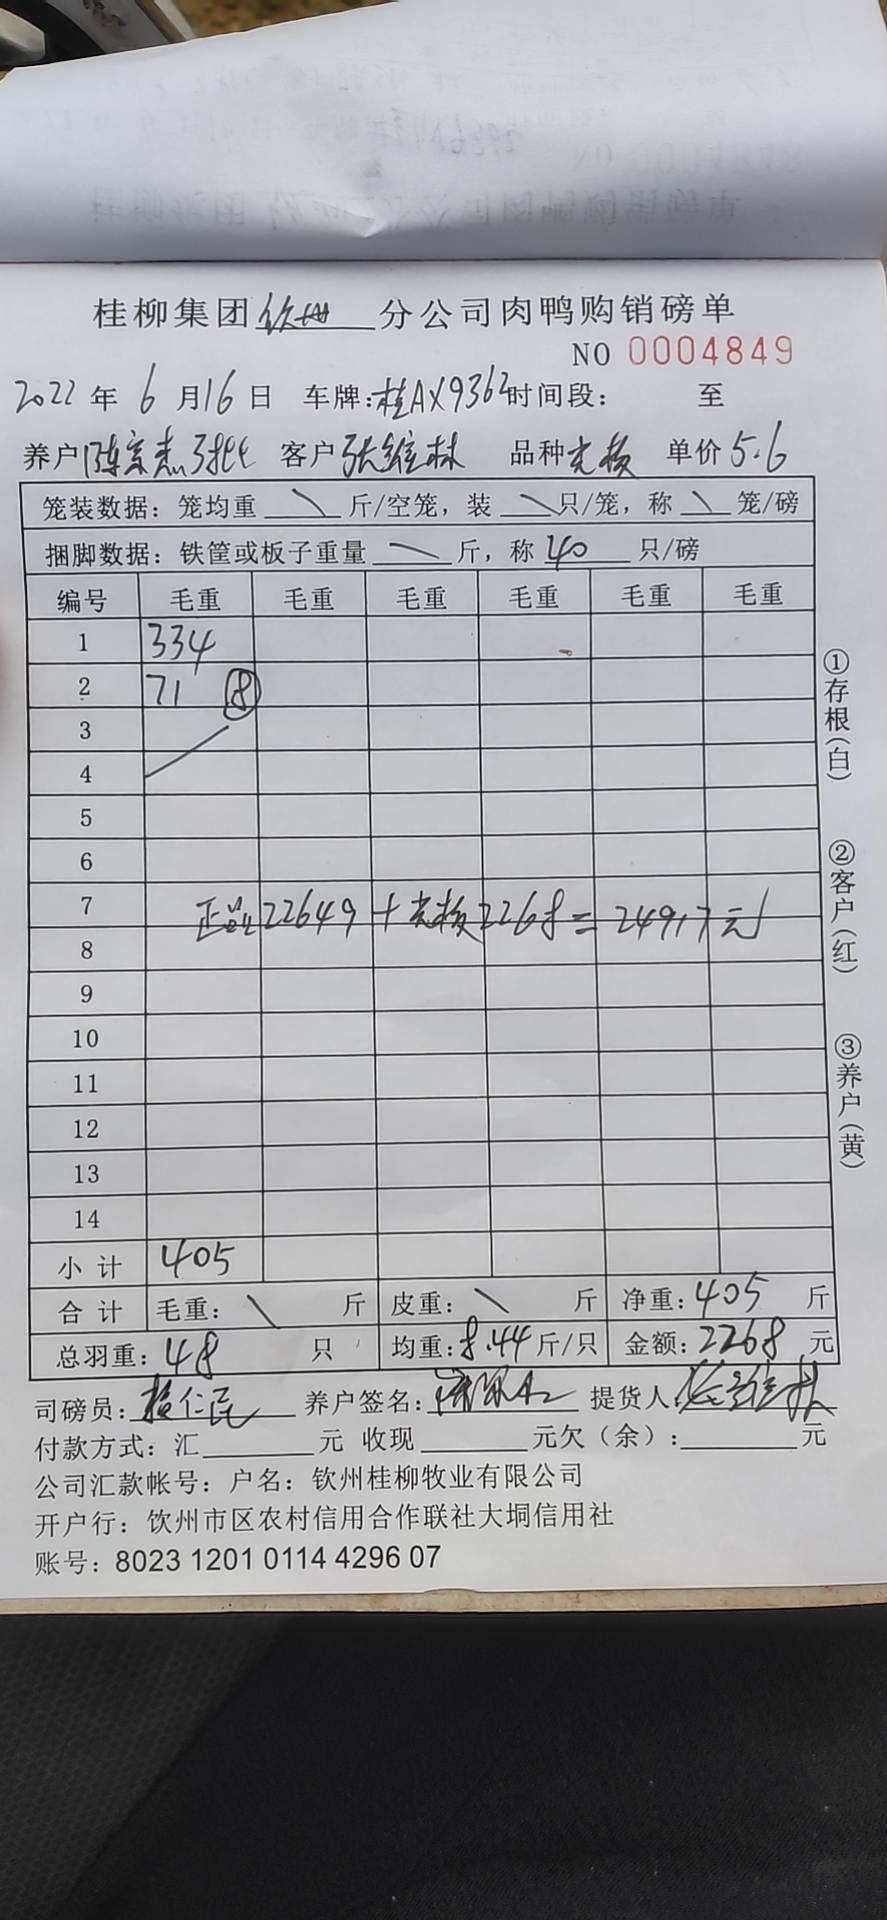 桂柳集团钦州分公司肉鸭购销磅单
NO 0004849
2022年6月16日 车牌:桂AX9362时间段: 至
养户 客户张维林 品种 单价5.6
笼装数据: 笼均重 \ 斤/空笼, 装 \ 只/笼, 称 \ 笼/磅
捆脚数据: 铁筐或板子重量 \ 斤, 称 40 只/磅
编号 毛重 毛重 毛重 毛重 毛重 毛重
1 334
2 71 ⑧
3
4
5
6
7
正品22649+ 2268=24917元
8
9
10
11
12
13
14
小计 405
合计 毛重: \ 斤 皮重: \ 斤 净重: 405 斤
总羽重: 48 只 均重: 8.44 斤/只 金额: 2268 元
司磅员: 养户签名: 提货人:
付款方式: 汇 元 收现 元欠(余): 元
公司汇款帐号: 户名: 钦州桂柳牧业有限公司
开户行: 钦州市区农村信用合作联社大垌信用社
账号: 8023 1201 0114 4296 07
①存根(白)
②客户(红)
③养户(黄)